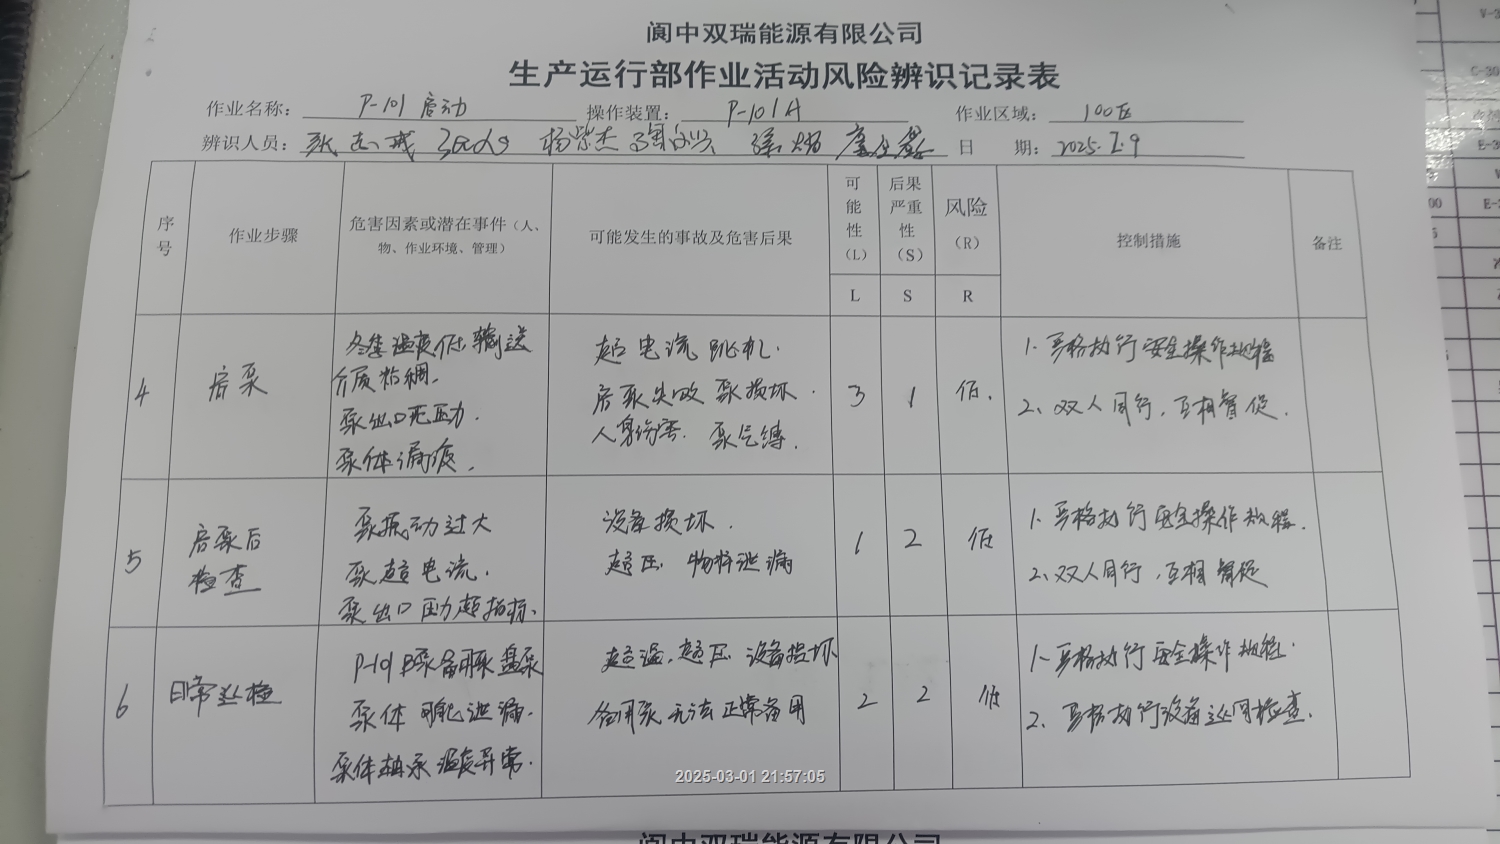 阆中双瑞能源有限公司
生产运行部作业活动风险辨识记录表
作业名称： P-101启动 操作装置： P-101A 作业区域： 100区
辨识人员： 杨紫杰 日 期： 2025.2.9
序号 作业步骤 危害因素或潜在事件（人、物、作业环境、管理） 可能发生的事故及危害后果 可能性（L） 后果严重性（S） 风险（R） 控制措施 备注
L S R
4 启泵 冬季温度低 输送介质粘稠. 泵出口无压力. 泵体漏液. 超电流 跳机. 启泵失败 泵损坏. 人身伤害. 泵气缚. 3 1 低. 1. 严格执行安全操作规程 2、双人同行，互相督促.
5 启泵后检查 泵振动过大 泵超电流. 泵出口压力超指标、 设备损坏. 超压. 物料泄漏 1 2 低 1. 严格执行安全操作规程. 2、双人同行，互相督促
6 日常巡检 P-101B泵备用泵盘泵 泵体 泄漏. 泵体轴承温度异常. 超温，超压 设备损坏 备用泵无法正常备用 2 2 低 1. 严格执行安全操作规程. 2、严格执行设备巡回检查.
2025-03-01 21:57:05
阆中双瑞能源有限公司